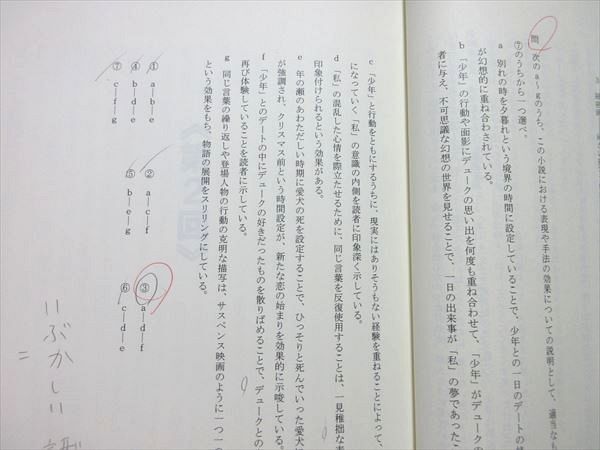 問 次のa～gのうち、この小説における表現や手法の効果についての説明として、適当なも
⑦のうちから一つ選べ。
a 別れの時を夕暮れという境界の時間に設定していることで、少年との一日のデートの
が幻想的に重ね合わされている。
b 「少年」の行動や面影にデュークの思い出を何度も重ね合わせて、「少年」がデュークの
者に与え、不可思議な幻想の世界を見せることで、一日の出来事が「私」の夢であったこ
c 「少年」と行動をともにするうちに、現実にはありそうもない経験を重ねることによって、
になっていく「私」の意識の内側を読者に印象深く示している。
d 「私」の混乱した心情を際立たせるために、同じ言葉を反復使用することは、一見稚拙な表
印象付けられるという効果がある。
e 年の瀬のあわただしい時期に愛犬の死を設定することで、ひっそりと死んでいった愛犬に
が強調され、クリスマス前という時間設定が、新たな恋の始まりを効果的に示唆している。
f 「少年」とのデートの中にデュークの好きだったものを散りばめることで、デュークとの
再び体験していることを読者に示している。
g 同じ言葉の繰り返しや登場人物の行動の克明な描写は、サスペンス映画のように一つ一つ
という効果をもち、物語の展開をスリリングにしている。
① a―b―e
② a―c―f
③ a―d―f
④ b―d―e
⑤ b―e―g
⑥ c―d―e
⑦ c―f―g
いぶかしい